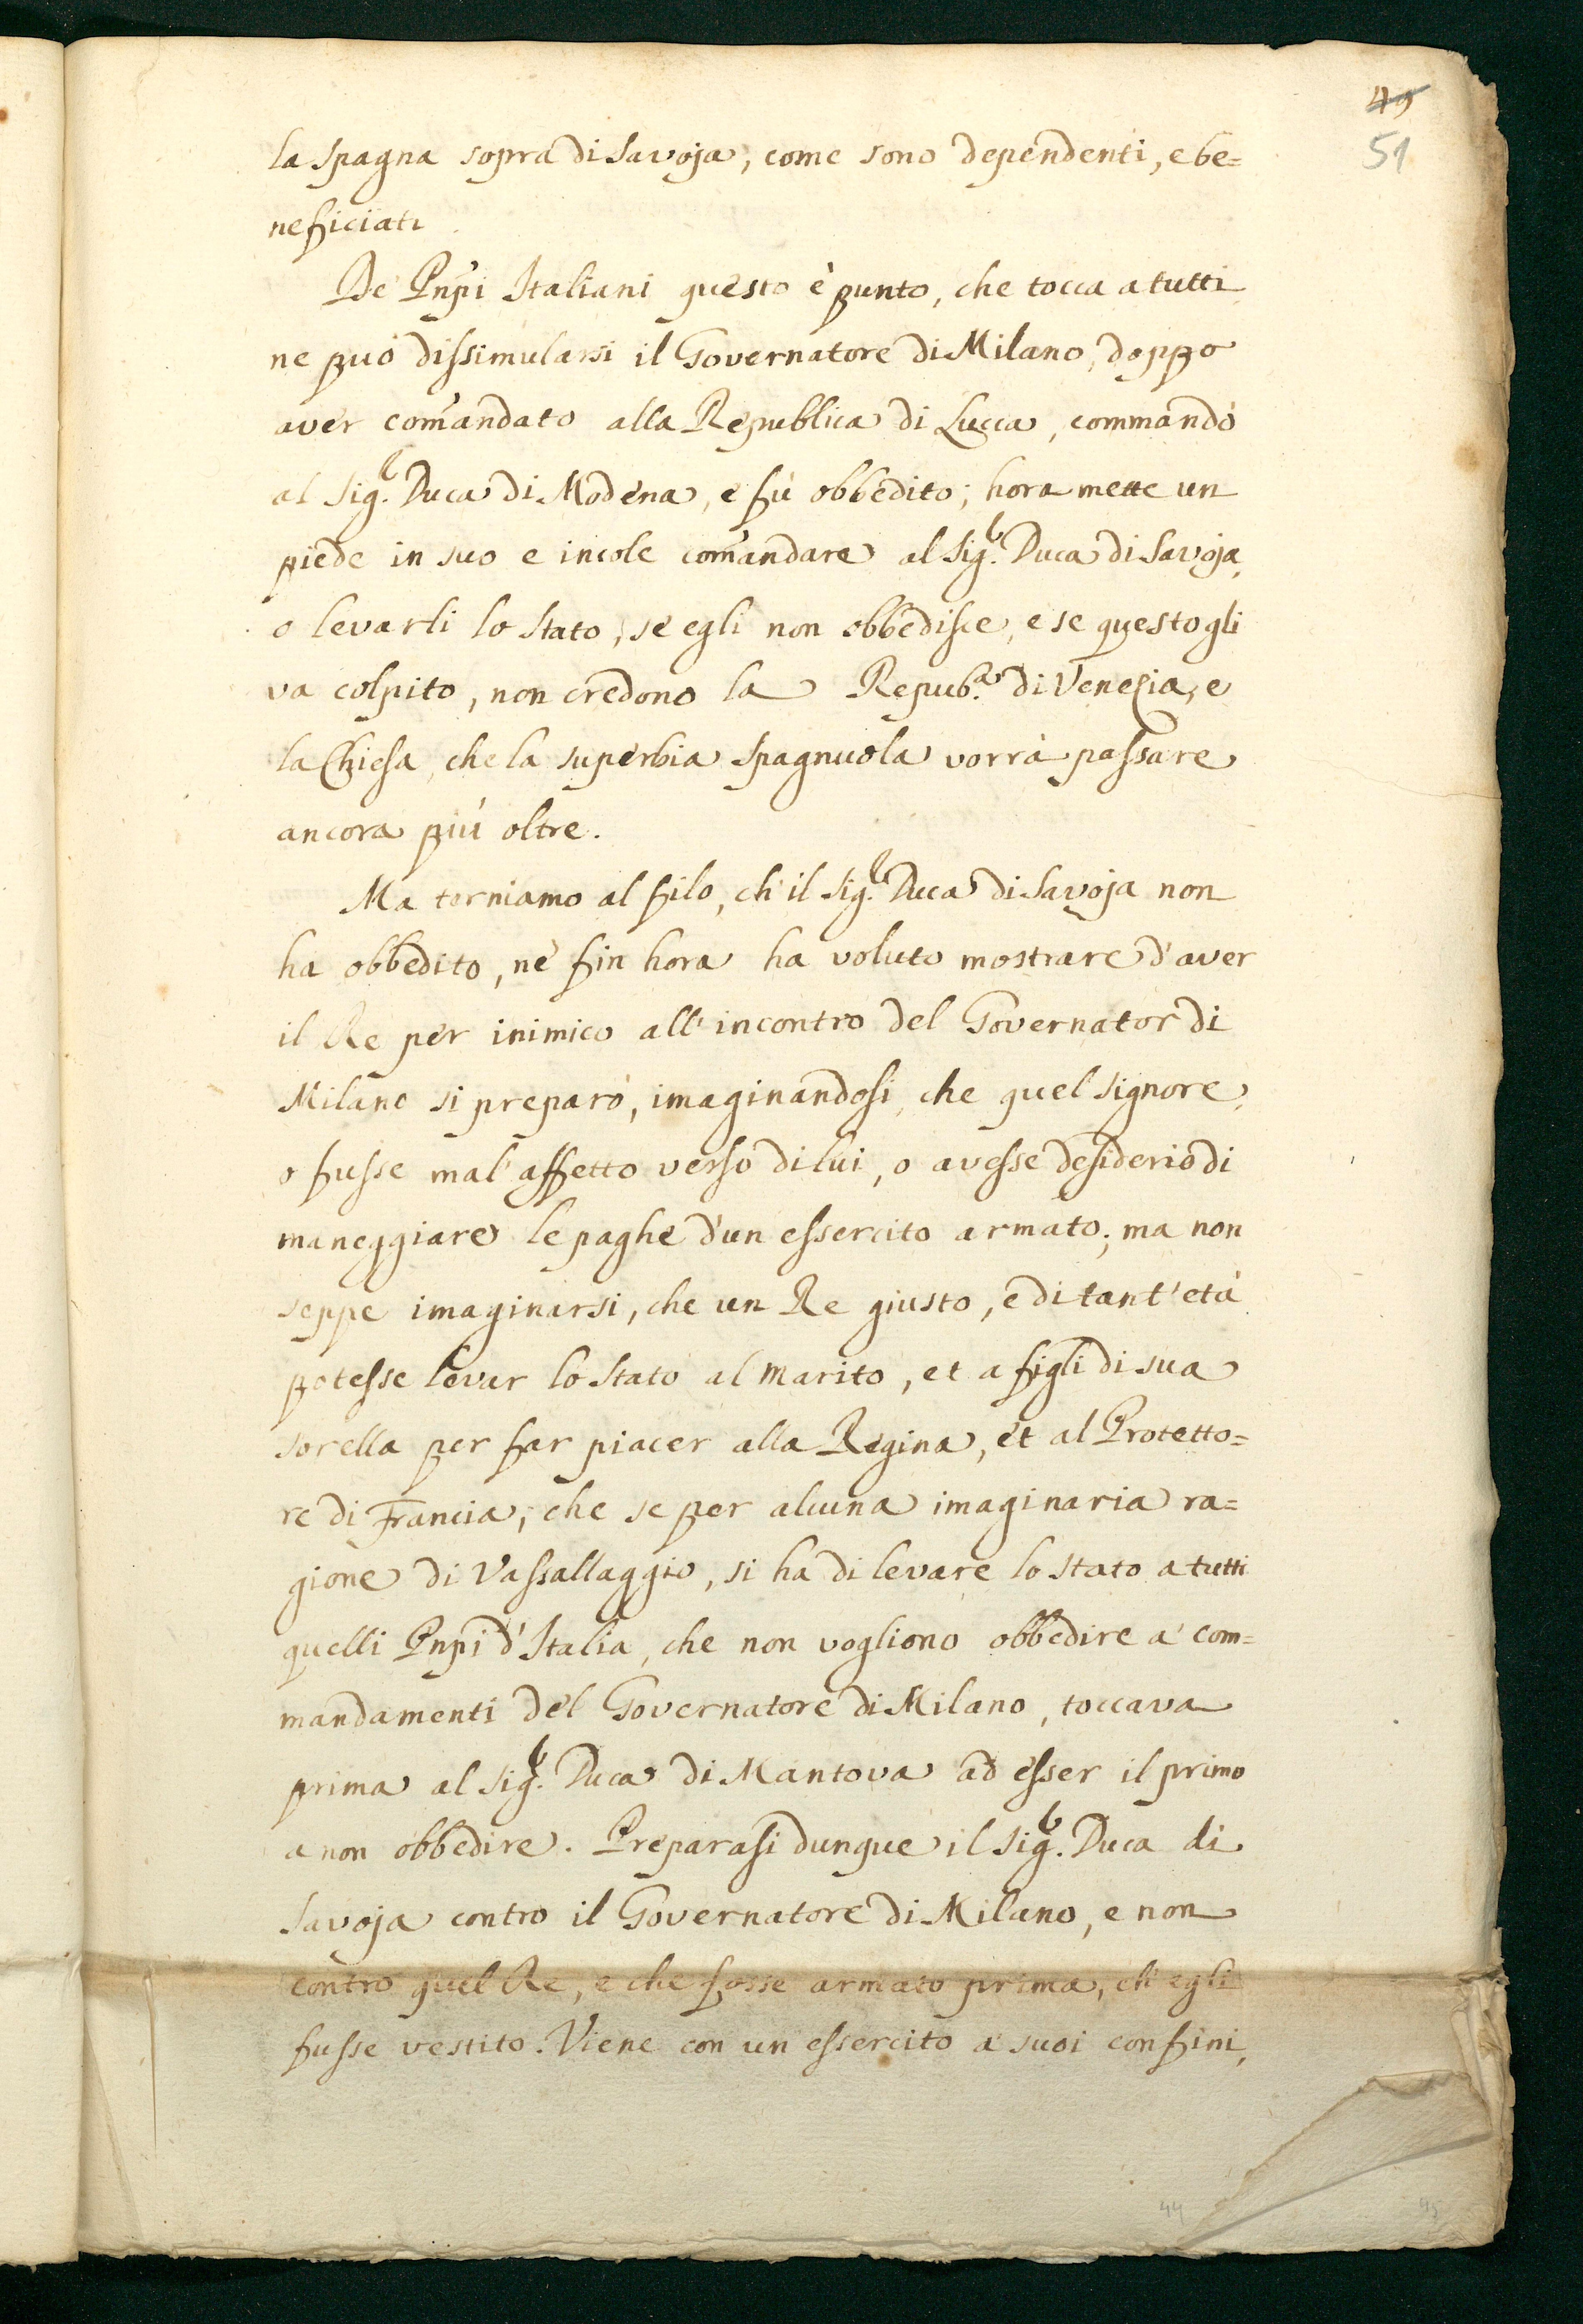 49
51
la Spagna sopra di Savoja, come sono dependenti, e be=
neficiati.
De Pnpi Italiani questo è punto, che tocca a tutti
ne può dissimularsi il Governatore di Milano, doppo
aver comandato alla Republica di Lucca, commandò
al Sig.r Duca di Modena, e fù obbedito; hora mette un
piede in suo e incole comandare al Sig.r Duca di Savoja,
o levarli lo Stato, se egli non obbedisce, e se questo gli
va colpito, non credono la Repub.a di Venezia, e
la Chiesa, che la superbia Spagnuola vorrà passare
ancora più oltre.
Ma torniamo al filo, ch'il Sig.r Duca di Savoja non
ha obbedito, nè fin hora ha voluto mostrare d'aver
il Re per inimico all'incontro del Governator di
Milano si preparò, imaginandosi, che quel Signore,
o fusse mal'affetto verso di lui, o avesse desiderio di
maneggiare le paghe d'un essercito armato; ma non
seppe imaginarsi, che un Re giusto, e di tant'età
potesse levar lo Stato al marito, et a figli di sua
sorella per far piacer alla Regina, et al Protetto=
re di Francia; che se per alcuna imaginaria ra=
gione di Vassallaggio, si ha di levare lo Stato a tutti
quelli Pnpi d'Italia, che non vogliono obbedire a' com=
mandamenti del Governatore di Milano, toccava
prima al Sig.r Duca di Mantova ad esser il primo
a non obbedire. Preparasi dunque il Sig.r Duca di
Savoja contro il Governatore di Milano, e non
contro quel Re, e che fosse armato prima, ch'egli
fusse vestito. Viene con un essercito a' suoi confini,
44
45